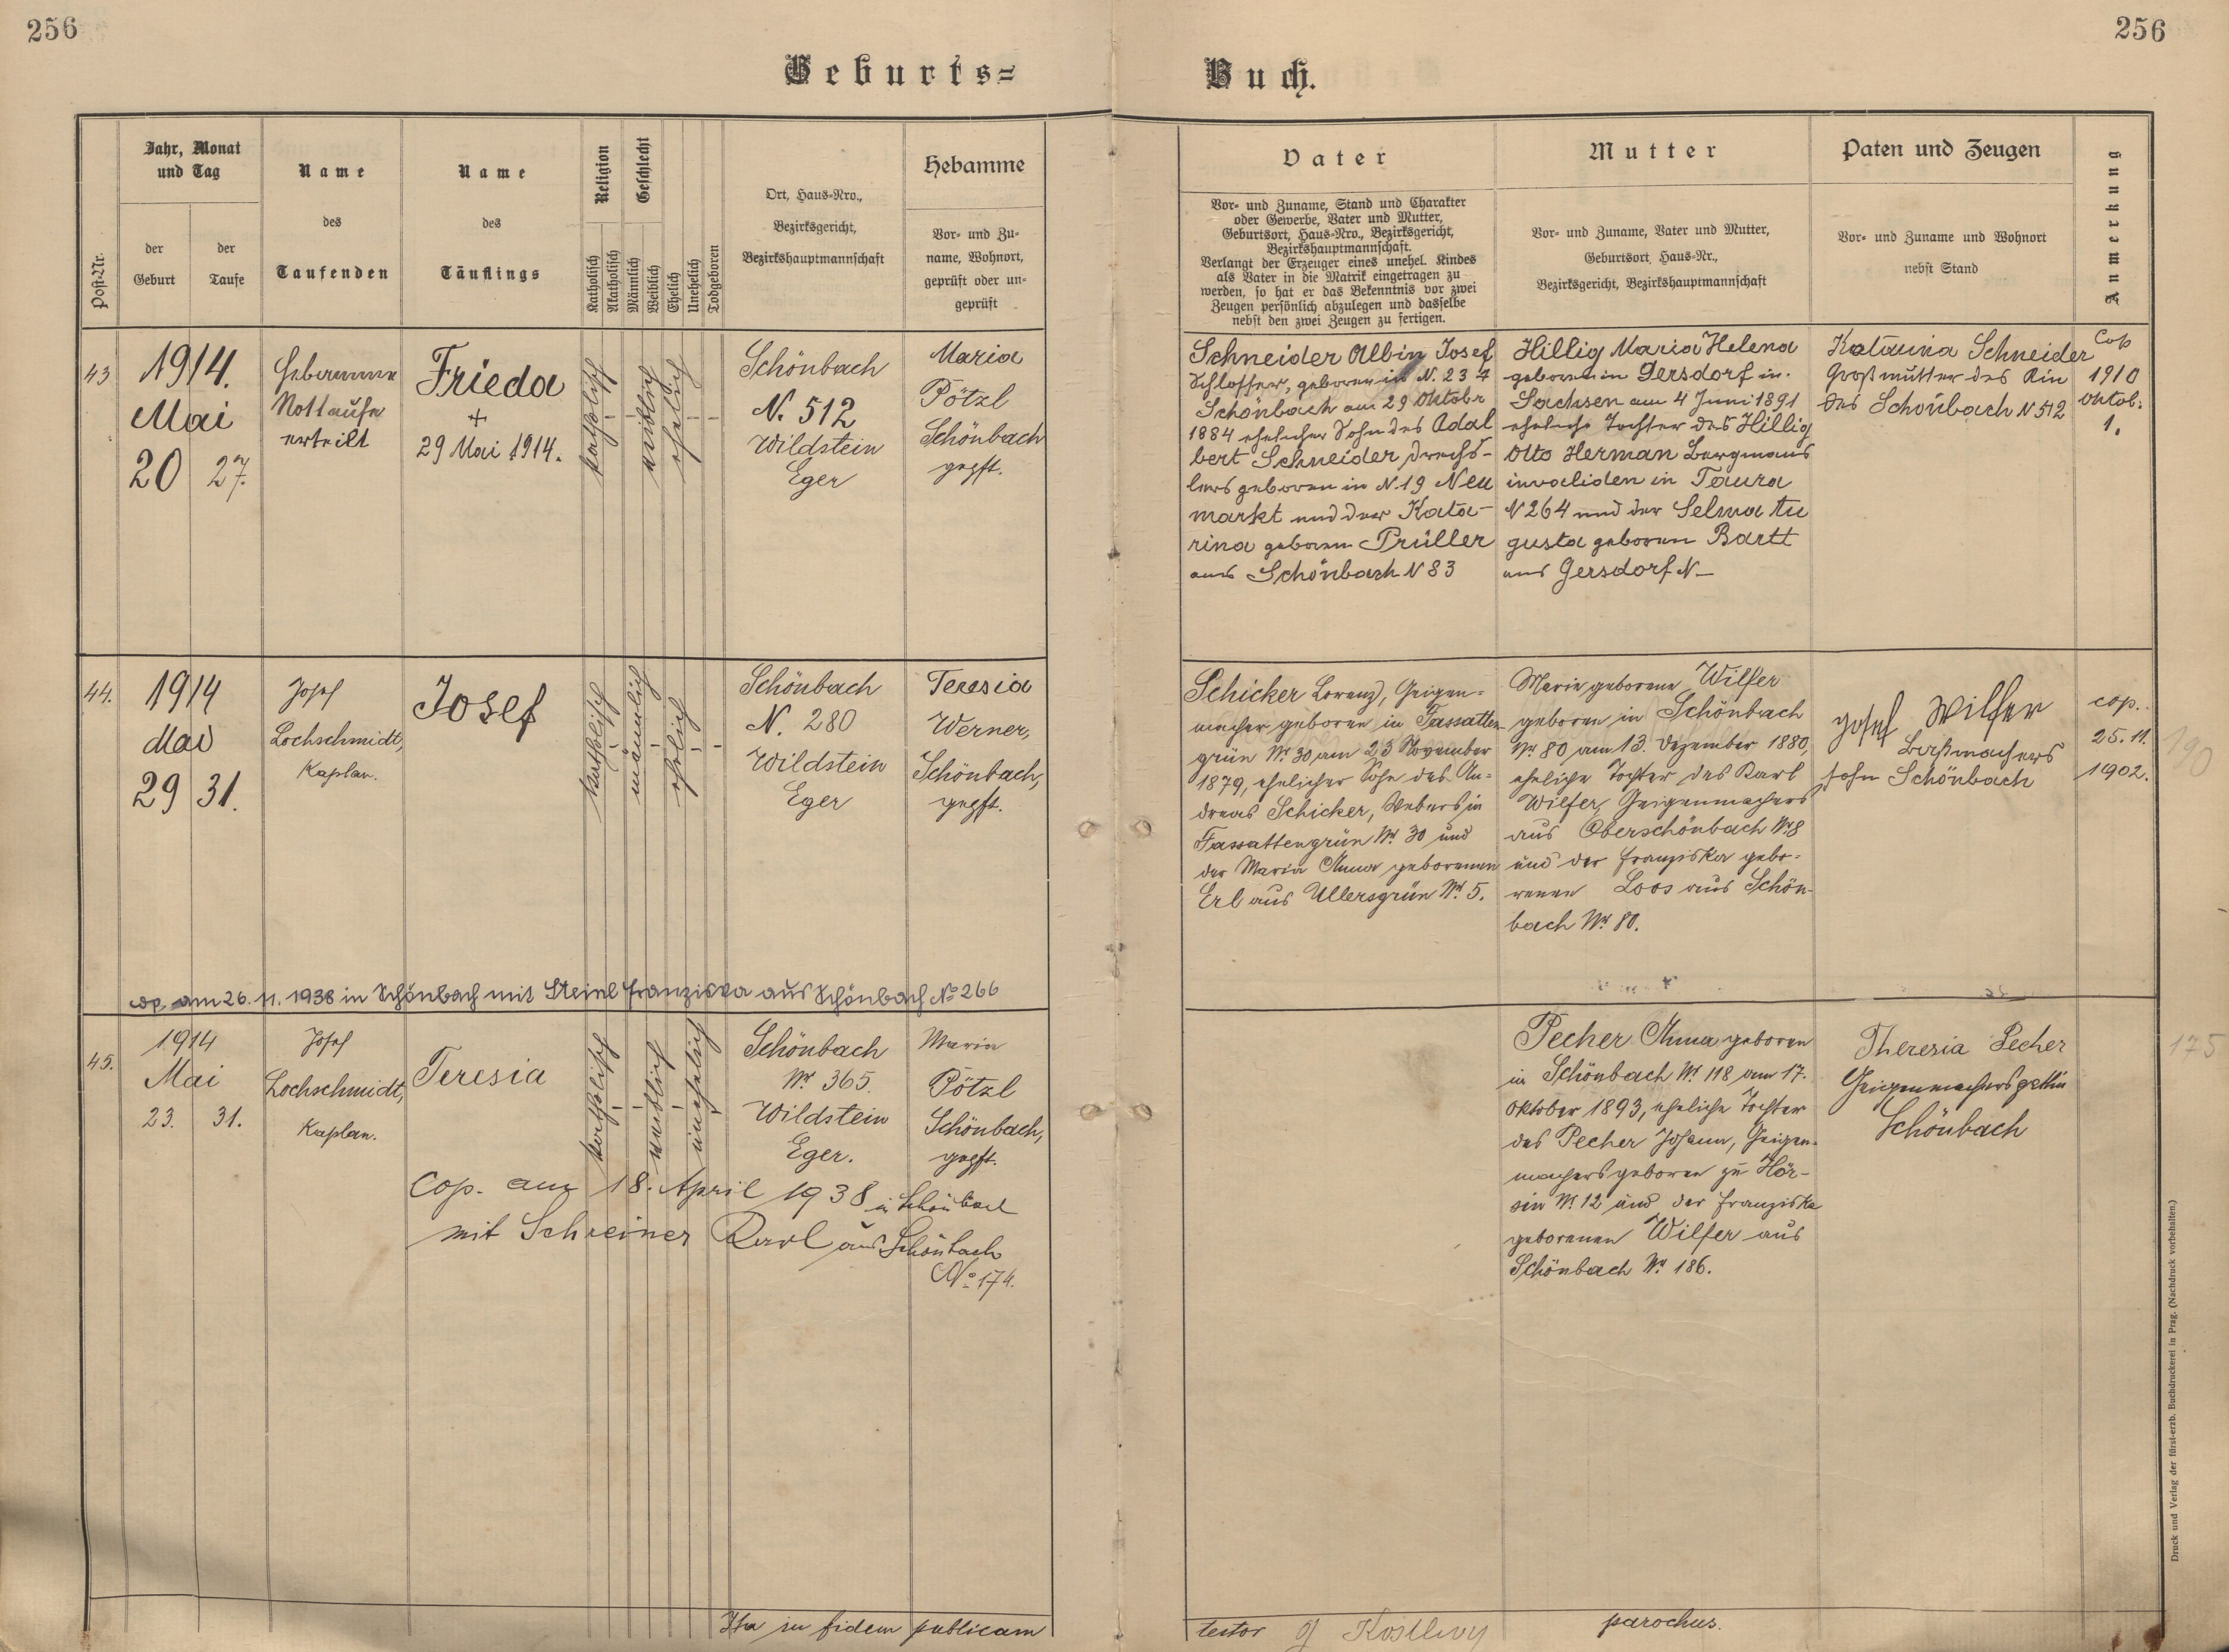 256
256
Geburts=
Buch.
Post-Nr.
Jahr, Monat
und Tag
der
Geburt
der
Taufe
Name
des
Taufenden
Name
des
Täuflings
Religion
Katholisch
Akatholisch
Geschlecht
Männlich
Weiblich
Ehelich
Unehelich
Todgeboren
Ort, Haus-Nro.,
Bezirksgericht,
Bezirkshauptmannschaft
Hebamme
Vor- und Zu-
name, Wohnort,
geprüft oder un-
geprüft
Vater
Vor- und Zuname, Stand und Charakter
oder Gewerbe, Vater und Mutter,
Geburtsort, Haus-Nro., Bezirksgericht,
Bezirkshauptmannschaft.
Verlangt der Erzeuger eines unehel. Kindes
als Vater in die Matrik eingetragen zu
werden, so hat er das Bekenntnis vor zwei
Zeugen persönlich abzulegen und dasselbe
nebst den zwei Zeugen zu fertigen.
Mutter
Vor- und Zuname, Vater und Mutter,
Geburtsort, Haus-Nr.,
Bezirksgericht, Bezirkshauptmannschaft
Paten und Zeugen
Vor- und Zuname und Wohnort
nebst Stand
Anmerkung
43
1914.
Mai
20 27.
Hebamme
Nottaufe
erteilt
Frieda
+
29 Mai 1914.
katholisch
weiblich
ehelich
Schönbach
N. 512
Wildstein
Eger
Maria
Pötzl
Schönbach
gepft.
Schneider Albin Josef
Schlosser, geboren in N. 234
Schönbach am 29 Oktobr
1884 ehelicher Sohn des Adal
bert Schneider Drechs-
lers geboren in N. 19 Neu
markt und der Kata-
rina geboren Prüller
aus Schönbach N 83
Hillig Maria Helena
geboren in Gersdorf in
Sachsen am 4 Juni 1891
eheliche Tochter des Hillig
Otto Herman Bergmans
invaliden in Taura
N 264 und der Selma Au
gusta geboren Bartt
aus Gersdorf N_
Katarina Schneider
Großmutter des Kin
des Schönbach N 512
Cop
1910
Oktob.
1.
44.
1914
Mai
29 31.
Josef
Lochschmidt,
Kaplan.
Josef
katholisch
männlich
ehelich
Schönbach
N. 280
Wildstein
Eger
Teresia
Werner,
Schönbach,
gepft.
Schicker Lorenz, Geigen=
macher geboren in Fassatten
grün Nr. 30 am 23 November
1879, ehelicher Sohn des An=
dreas Schicker, Webers in
Fassattengrün Nr. 30 und
der Maria Anna geborenen
Erl aus Ullersgrün Nr. 5.
Marie geborene Wilfer
geboren in Schönbach
Nr 80 am 13. Dezember 1880,
eheliche Tochter des Karl
Wilfer, Geigenmachers
aus Oberschönbach Nr. 8
und der Franziska gebo=
renen Loos aus Schön-
bach Nr. 80.
Josef Wilfer
Baßmachers
sohn Schönbach
cop.
25. 11.
1902.
190
cop. am 26. 11. 1938 in Schönbach mit Steinl Franziska aus Schönbach No 266
45.
1914
Mai
23. 31.
Josef
Lochschmidt,
Kaplan.
Teresia
katholisch
weiblich
unehelich
Schönbach
Nr 365.
Wildstein
Eger.
Maria
Pötzl
Schönbach,
gepft.
Cop. am 18. April 1938 in Schönbach
mit Schreiner Karl aus Schönbach
No 174.
Pecher Anna geboren
in Schönbach Nr. 118 am 17.
Oktober 1893, eheliche Tochter
des Pecher Johann, Geigen-
machers geboren zu Hör-
sin Nr. 12 und der Franziska
geborenen Wilfer aus
Schönbach Nr. 186.
Theresia Pecher
Geigenmachersgattin
Schönbach
175
Ita in fidem publicam
testor J Kostlivy
parochus.
Druck und Verlag der fürst-erzb. Buchdruckerei in Prag. (Nachdruck vorbehalten.)